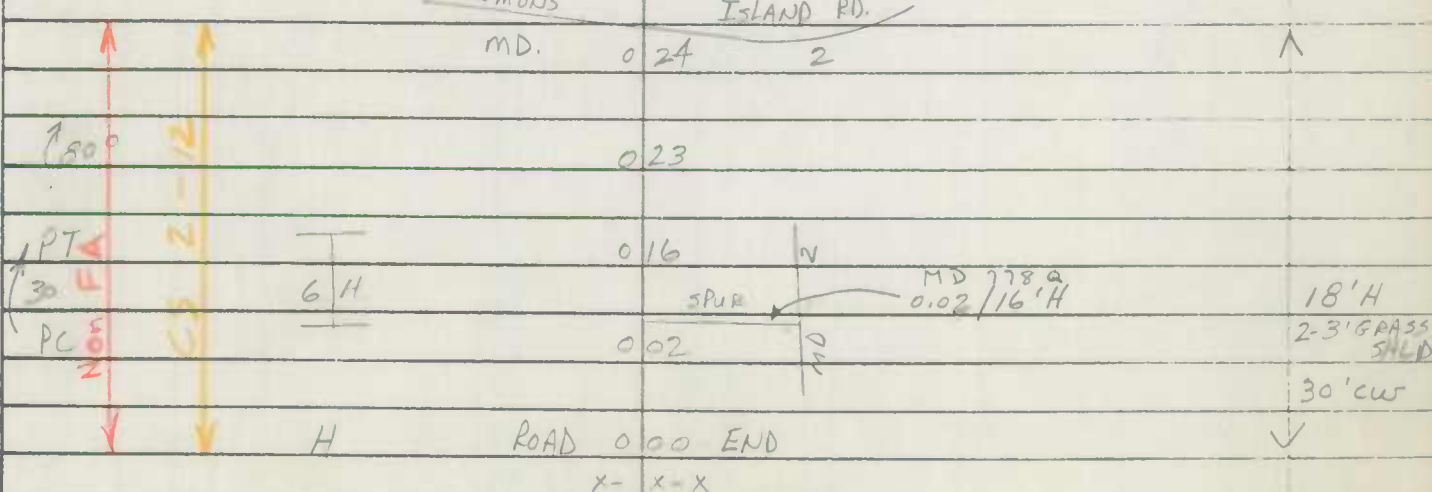 ISLAND RD.
MD. 0 24 2
80°
0 23
PT 0 16 2
30 6 H SPUR MD 778Q
0.02/16'H 18'H
PC 0 02 MD 2-3' GRASS
SHLD
30' CW
Non FA
H ROAD 0 00 END
x- x-x